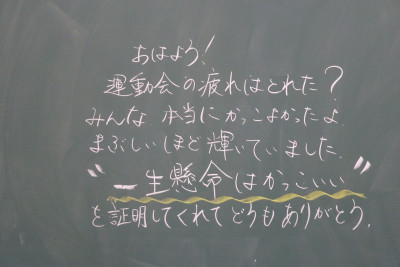 おはよう!
運動会の疲れはとれた?
みんな、本当にかっこよかったよ
まぶしいほど輝いていました。
"一生懸命はかっこいい"
を証明してくれてどうもありがとう。